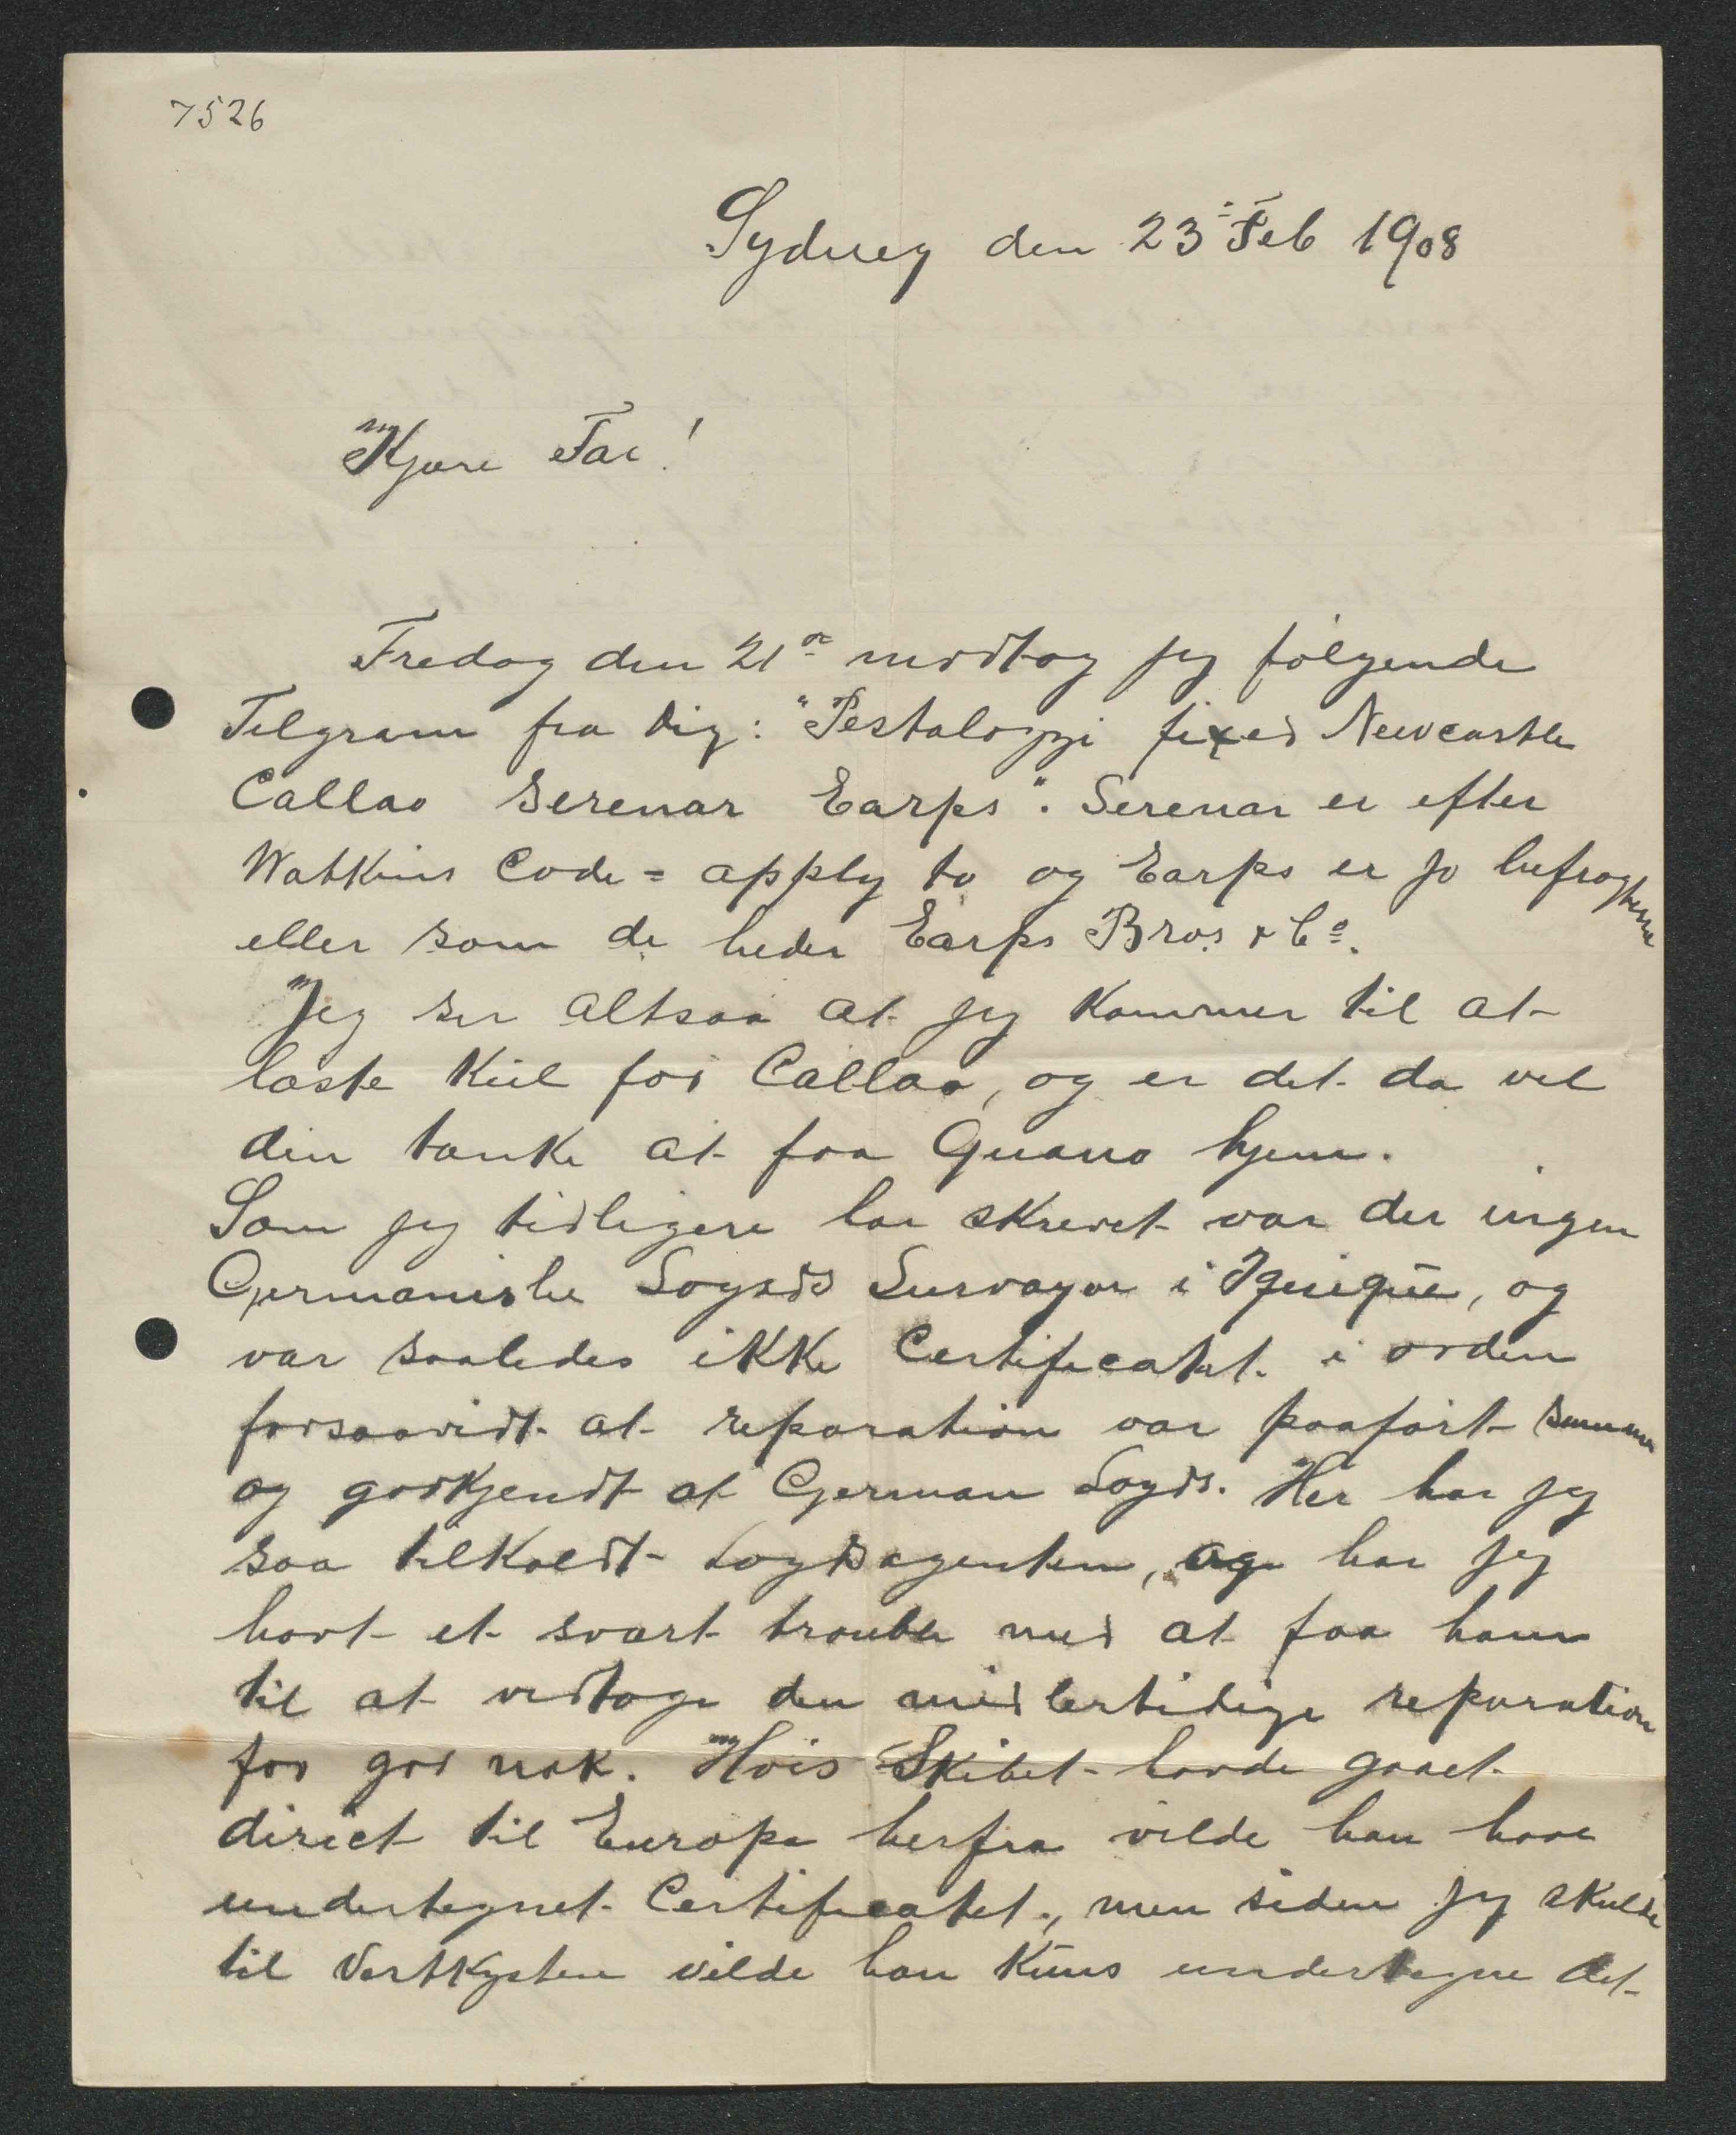 7526
Sydney den 23: Feb 1908
Kjære Far!
Fredag den 21de modtog jeg følgende
Telgram fra Dig: "Pestalozzi fixed Newcastle
Callao Serenar Earps". Serenar er efter
Watkins Code = apply to og Earps er jo befragterne
eller som de heder Earps Bros & Co.
Jeg ser altsaa at jeg kommer til at
laste Kul for Callao, og er det da vel
din tanke at faa Guano hjem.
Som jeg tidligere har skrevet var der ingen
Germanishe Loyds Survayor i Iquique, og
var saaledes ikke Certificatet i orden
forsaavidt at reparation var paaført samme
og godkjendt af German Loyds. Her har jeg
saa tilkaldt Loydsagenten, og har jeg
havt et svært trouble med at faa ham
til at vedtage den midlertidige reparation
for god nok. Hvis Skibet havde gaaet
direct til Europa herfra vilde han have
undertegnet Certificatet, men siden jeg skulde
til Vestkysten vilde han kuns undertegne det